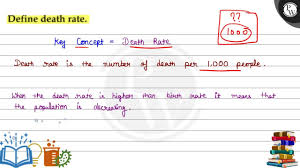 Define death rate.
??
1000
Key Concept = Death Rate
Death rate is the number of death per 1,000 people.
When the death rate is higher than birth rate it means that
the population is decreasing.